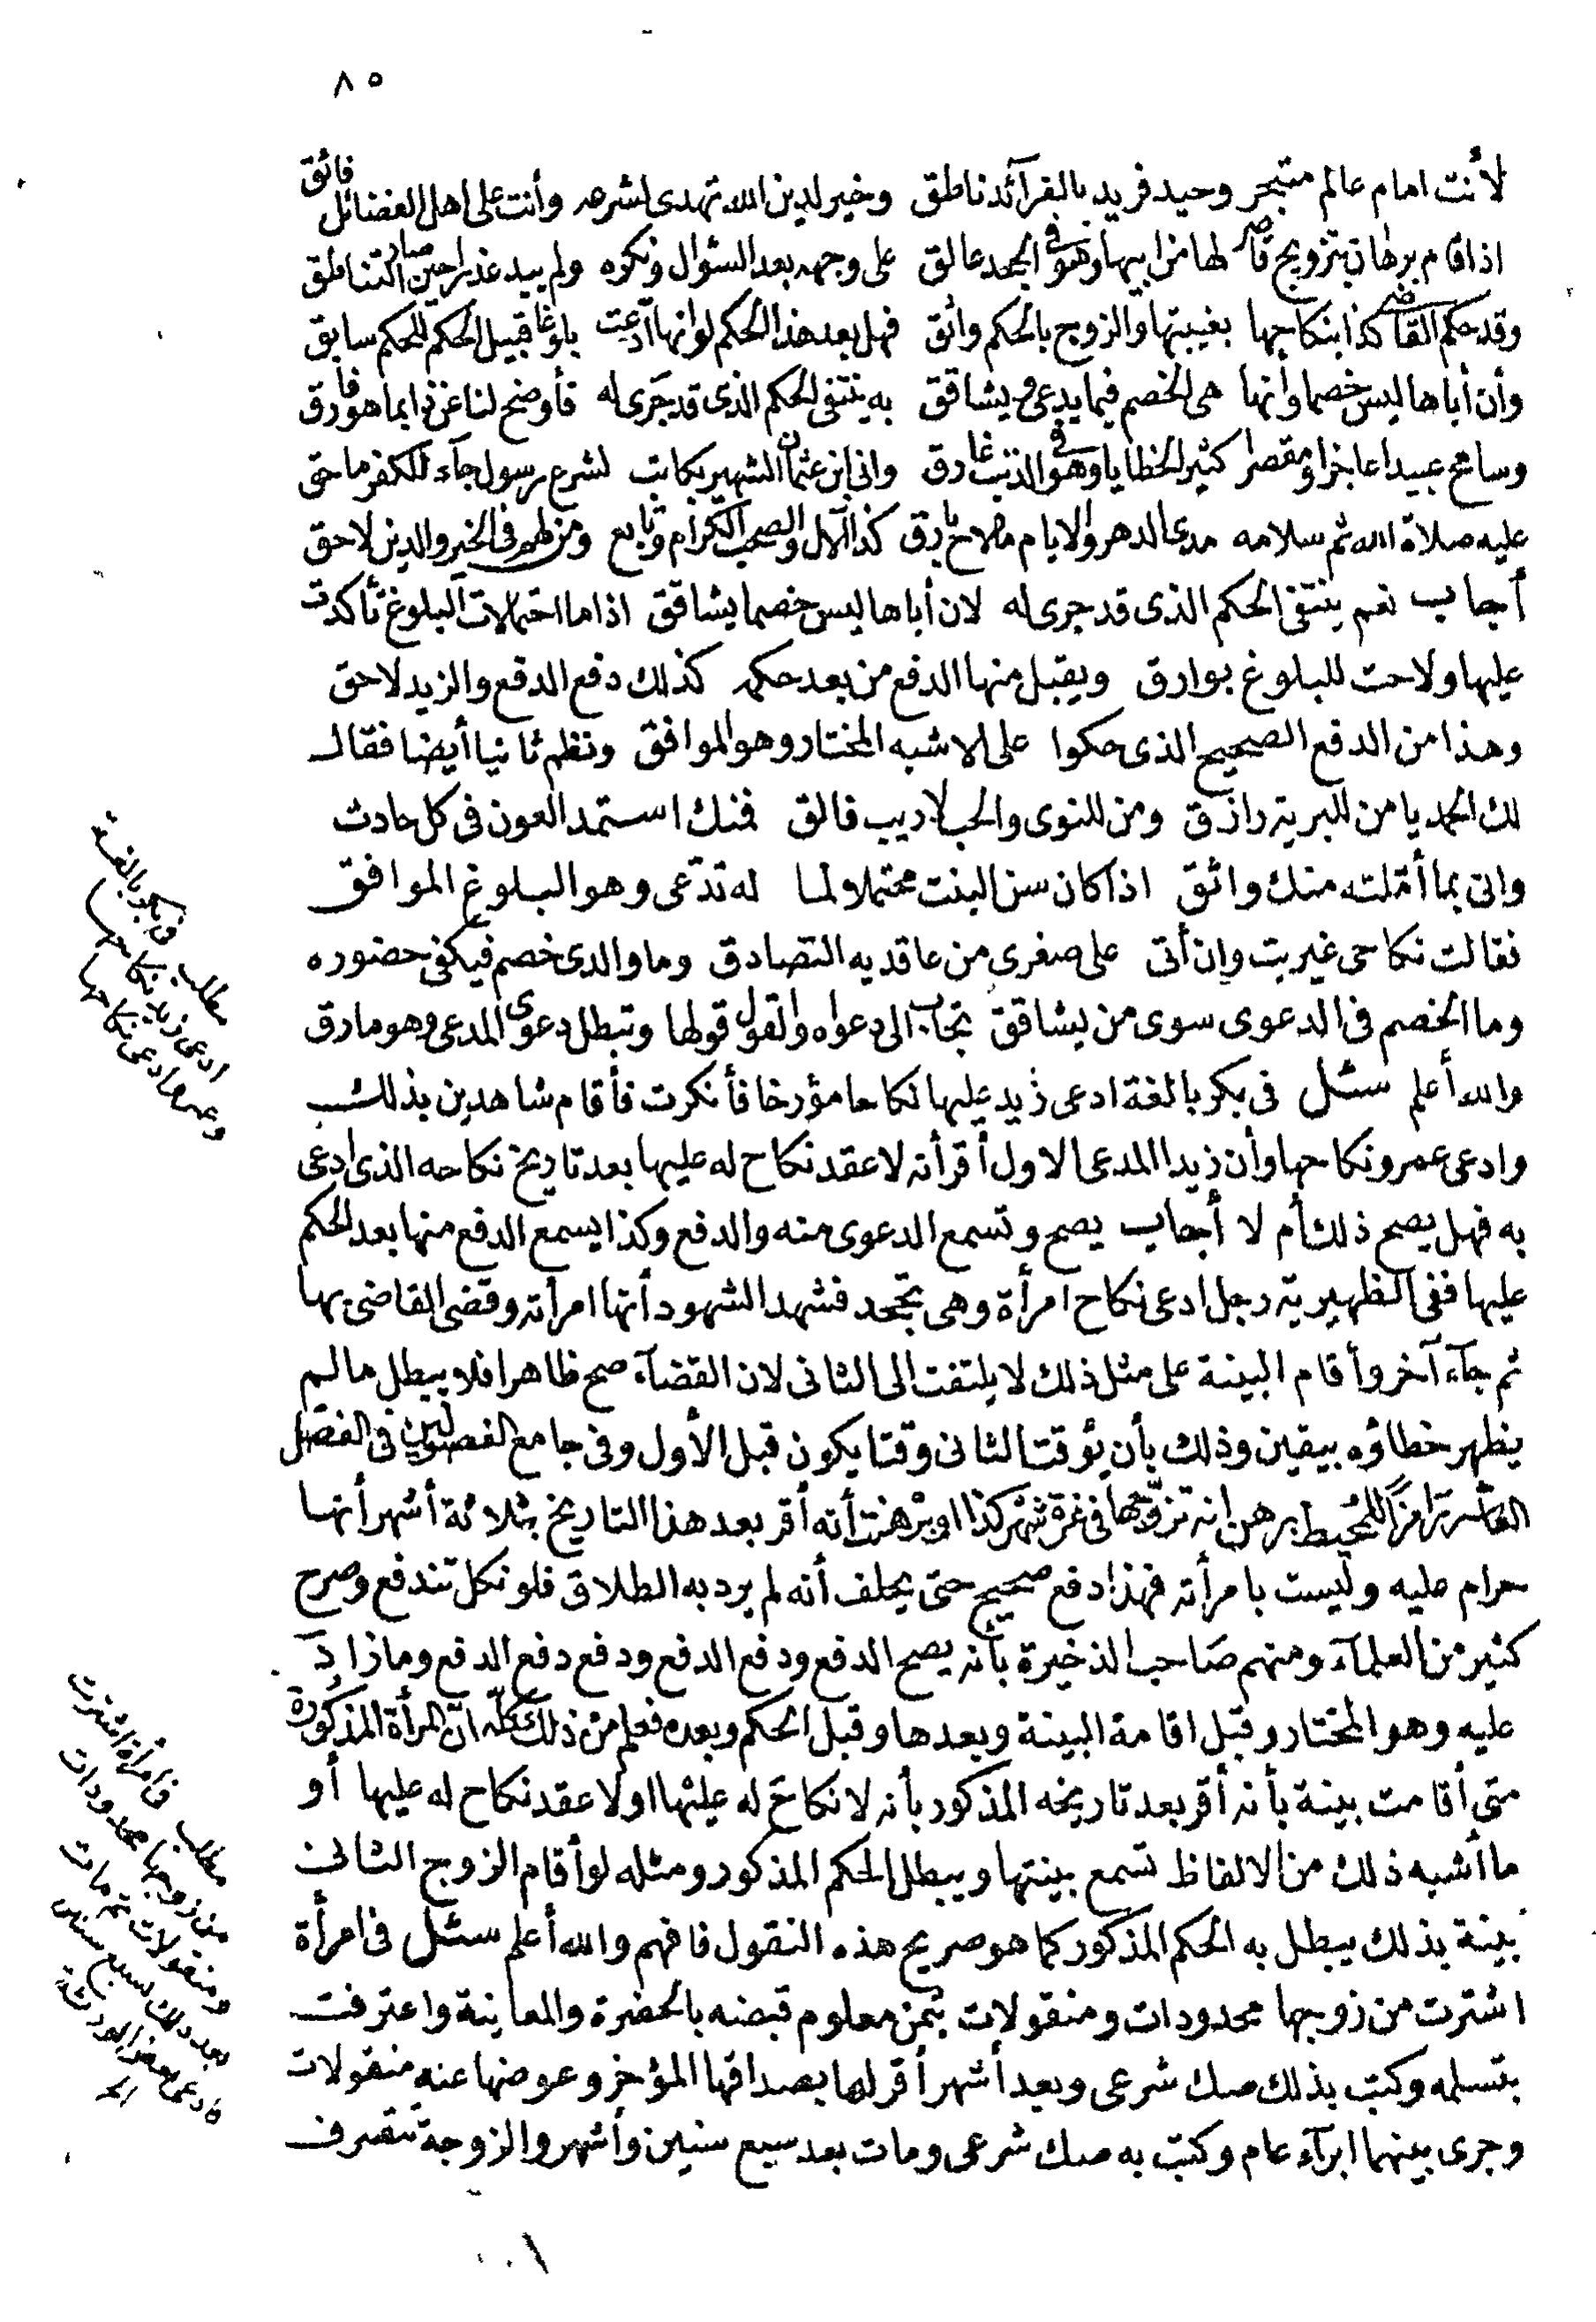 ٨٥
لأنت امام عالم متبحر وحيد فريد بالفرآئد ناطق وخير لدين الله تهدى لشرعه وأنت على اهل الفضائل فائق
اذا قام برهان بتزويج قاصر لها من ابيها وهو فى الجحد عالق على وجهه بعد السؤال ونكوه ولم يبد عذرا حين صار التناطق
وقد حكم القاضى كذا بنكاحها بغيبتها والزوج بالحكم واثق فهل بعد هذا الحكم لو انها ادّعت بلوغا قبيل الحكم للحكم سابق
وأن أباها ليس خصما وأنها هى الخصم فيما يدعى ويشاقق به ينتفى الحكم الذى قد جرى له فأوضح لنا عن ذا بما هو فارق
وسامح عبيدا عاجزا ومقصرا كثير الخطايا وهو فى الذنب غارق وانى ابن عثمان الشهير بكاتب لشرع رسول جآء للكفر ماحق
عليه صلاة الله ثم سلامه مدى الدهر والايام ما لاح بارق كذا الآل والصحب الكرام وتابع ومن لهم فى الخير والدين لاحق
أجاب نعم ينتفى الحكم الذى قد جرى له لان أباها ليس خصما يشاقق اذا ما احتمالات البلوغ تأكدت
عليها ولاحت للبلوغ بوارق ويقبل منها الدفع من بعد حكمه كذلك دفع الدفع والزيد لاحق
وهذا من الدفع الصحيح الذى حكوا على الاشبه المختار وهو الموافق ونظم ثانيا أيضا فقال
لك الحمد يا من للبرية رازق ومن للنوى والحب لا ريب فالق فمنك استمد العون فى كل حادث
وانى بما أمّلته منك واثق اذا كان سن البنت محتملا لما له تدّعى وهو البلوغ الموافق
فقالت نكاحى غير بت وإن أتى على صغرى من عاقديه التصادق وما والدى خصم فيكفى حضوره
وما الخصم فى الدعوى سوى من يشاقق تجاب الى دعواه والقول قولها وتبطل دعوى المدعى وهو مارق
والله أعلم سئل فى بكر بالغة ادعى زيد عليها نكاحا مؤرخا فأنكرت فأقام شاهدين بذلك
وادعى عمرو نكاحها وأن زيدا المدعى الاول أقر أنه لا عقد نكاح له عليها بعد تاريخ نكاحه الذى ادعى
به فهل يصح ذلك أم لا أجاب يصح وتسمع الدعوى منه والدفع وكذا يسمع الدفع منها بعد الحكم
عليها ففى الظهيرية رجل ادعى نكاح امرأة وهى تجحد فشهد الشهود أنها امرأته وقضى القاضى بها
ثم جآء آخر وأقام البينة على مثل ذلك لا يلتفت الى الثانى لان القضآء صح ظاهرا فلا يبطل ما لم
يظهر خطاؤه بيقين وذلك بأن يؤقت الثانى وقتا يكون قبل الأول وفى جامع الفصولين فى الفصل
العاشر رامزاً للمحيط برهن انه تزوّجها فى غرة شهر كذا وبرهنت أنه أقر بعد هذا التاريخ بثلاثة أشهر أنها
حرام عليه وليست بامرأته فهذا دفع صحيح حتى يحلف أنه لم يرد به الطلاق فلو نكل تندفع وصرح
كثير من العلمآء ومنهم صاحب الذخيرة بأنه يصح الدفع ودفع الدفع ودفع دفع الدفع وما زاد
عليه وهو المختار وقبل اقامة البينة وبعدها وقبل الحكم وبعده فعلم من ذلك كلّه انّ المرأة المذكورة
متى أقامت بينة بأنه أقر بعد تاريخه المذكور بأنه لا نكاح له عليها او لا عقد نكاح له عليها أو
ما أشبه ذلك من الالفاظ تسمع بينتها ويبطل الحكم المذكور ومثله لو أقام الزوج الثانى
بينة بذلك يبطل به الحكم المذكور كما هو صريح هذه النقول فافهم والله أعلم سئل فى امرأة
اشترت من زوجها محدودات ومنقولات بثمن معلوم قبضه بالحضرة والمعاينة واعترفت
بتسلمه وكتب بذلك صك شرعى وبعد أشهر أقر لها بصداقها المؤخر وعوضها عنه منقولات
وجرى بينهما ابرآء عام وكتب به صك شرعى ومات بعد سبع سنين وأشهر والزوجة تتصرف
مطلب فى بكر بالغة
ادعى زيد نكاحها
وعمرو ادعى نكاحها
مطلب فى امرأة اشترت
من زوجها محدودات
ومنقولات ثم مات
بعد ذلك سبع سنين
فادعى بعض الورثة
الخ